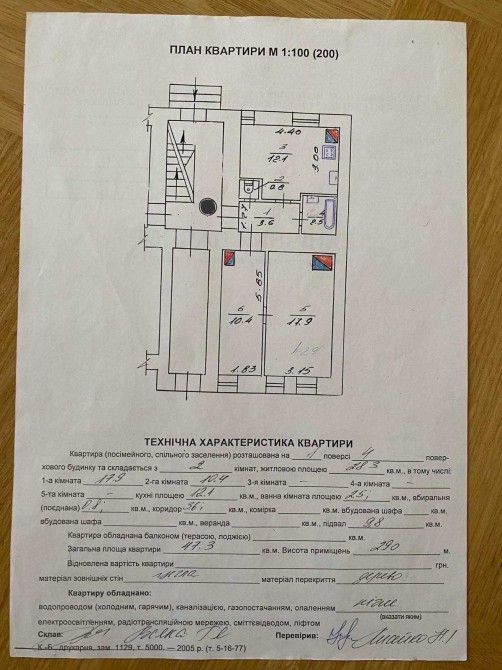 ПЛАН КВАРТИРИ М 1:100 (200)
4.40
3
12.1
3.00
2
0.8
1
3.6
2.5
5.65
6
10.4
5
17.9
1.83
3.15
ТЕХНІЧНА ХАРАКТЕРИСТИКА КВАРТИРИ
Квартира (посімейного, спільного заселення) розташована на 1 поверсі 4 повер-
хового будинку та складається з 2 кімнат, житловою площею 28.3 кв.м., в тому числі:
1-а кімната 17.9 2-га кімната 10.4 3-я кімната – 4-а кімната –
5-та кімната – кухні площею 12.1 кв.м., ванна кімната площею 2.5 кв.м., вбиральня
(поєднана) 0.8 кв.м., коридор 3.6 кв.м., комірка кв.м. вбудована шафа кв.м.
вбудована шафа кв.м., веранда кв.м., підвал 9.8 кв.м.
Квартира обладнана балконом (терасою, лоджією) кв.м.
Загальна площа квартири 47.3 кв.м. Висота приміщень 2.90 м.
Відновлена вартість квартири грн.
матеріал зовнішніх стін матеріал перекриття дерево
Квартиру обладнано:
водопроводом (холодним, гарячим), каналізацією, газопостачанням, опаленням
(вказати яким)
електроосвітленням, радіотрансляційною мережею, сміттєвідводом, ліфтом
Склав: Перевірив:
К.-Б., друкарня, зам. 1129, т. 5000. — 2005 р. (т. 5-16-77)